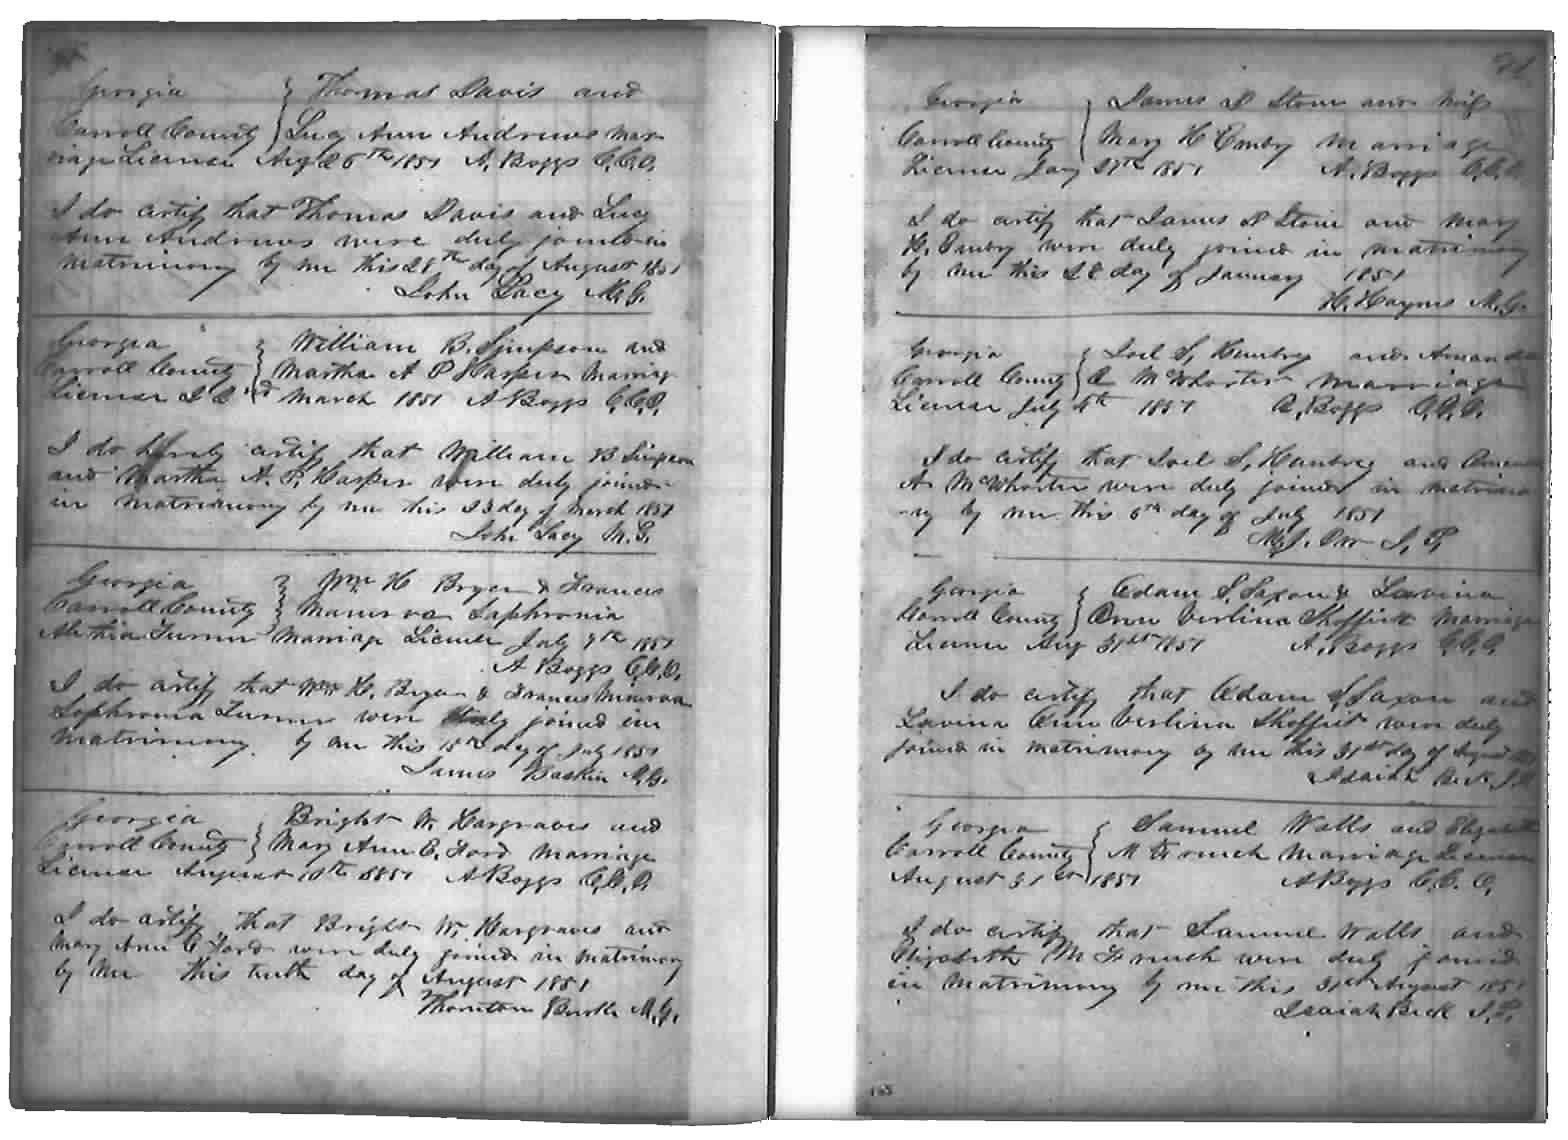 Georgia } Thomas Davis and
Carroll County } Lucy Ann Andrews Mar
riage License Aug 26th 1851 A. Boggs C.C.O.
I do certify that Thomas Davis and Lucy
Ann Andrews were duly joined in
matrimony by me this 28th day of August 1851
John Lacy M.G.
Georgia } William B. Simpson and
Carroll County } Martha A P Harper Marriag
License 22nd March 1851 A Boggs C.C.O.
I do hereby certify that William B Simpson
and Martha A. P. Harper were duly joined
in matrimony by me this 23 day of March 1851
John Lacy M.G.
Georgia } Wm H Bryer & Frances
Carroll County } Manerva Saphronia
Alethia Turner Marriage License July 9th 1851
A Boggs C.C.O.
I do certify that Wm H. Bryer & Frances Minerva
Sophronia Turner were duly joined in
matrimony by me this 15th day of July 1851
James Baskin M.G.
Georgia } Bright W. Hargraves and
Carroll County } Mary Ann C. Ford Marriage
License August 10th 1851 A Boggs C.C.O.
I do certify that Bright W. Hargraves and
Mary Ann C Ford were duly joined in matrimony
by me this tenth day of August 1851
Thornton Burke M.G.
71
Georgia } James D Stone and Miss
Carroll County } Mary H Embry Marriage
License Jany 27th 1851 A. Boggs C.C.O.
I do certify that James D Stone and Mary
H. Embry were duly joined in matrimony
by me this 28 day of January 1851
H. Haynes M.G.
Georgia } Joel S, Hanbry and Amanda
Carroll County } A McWhorter Marriage
License July 4th 1851 A. Boggs C.C.O.
I do certify that Joel S, Hanbrey and Amanda
A. McWhorter were duly joined in matrimo
-ny by me this 6th day of July 1851
M.J. Orr J. P.
Georgia } Adam S. Saxon & Lavina
Carroll County } Ann Verlina Shoffiet Marriage
License Aug 31st 1851 A. Boggs C.C.O.
I do certify that Adam S Saxon and
Lavina Ann Verlina Shoffiet were duly
joined in matrimony by me this 31st day of August 1851
Isaiah Beck J.P.
Georgia } Samuel Walls and Elizabeth
Carroll County } M French Marriage License
August 31st 1851 A Boggs C.C.O.
I do certify that Samuel Walls and
Elizabeth M French were duly joined
in matrimony by me this 31st August 1851
Isaiah Beck J.P.